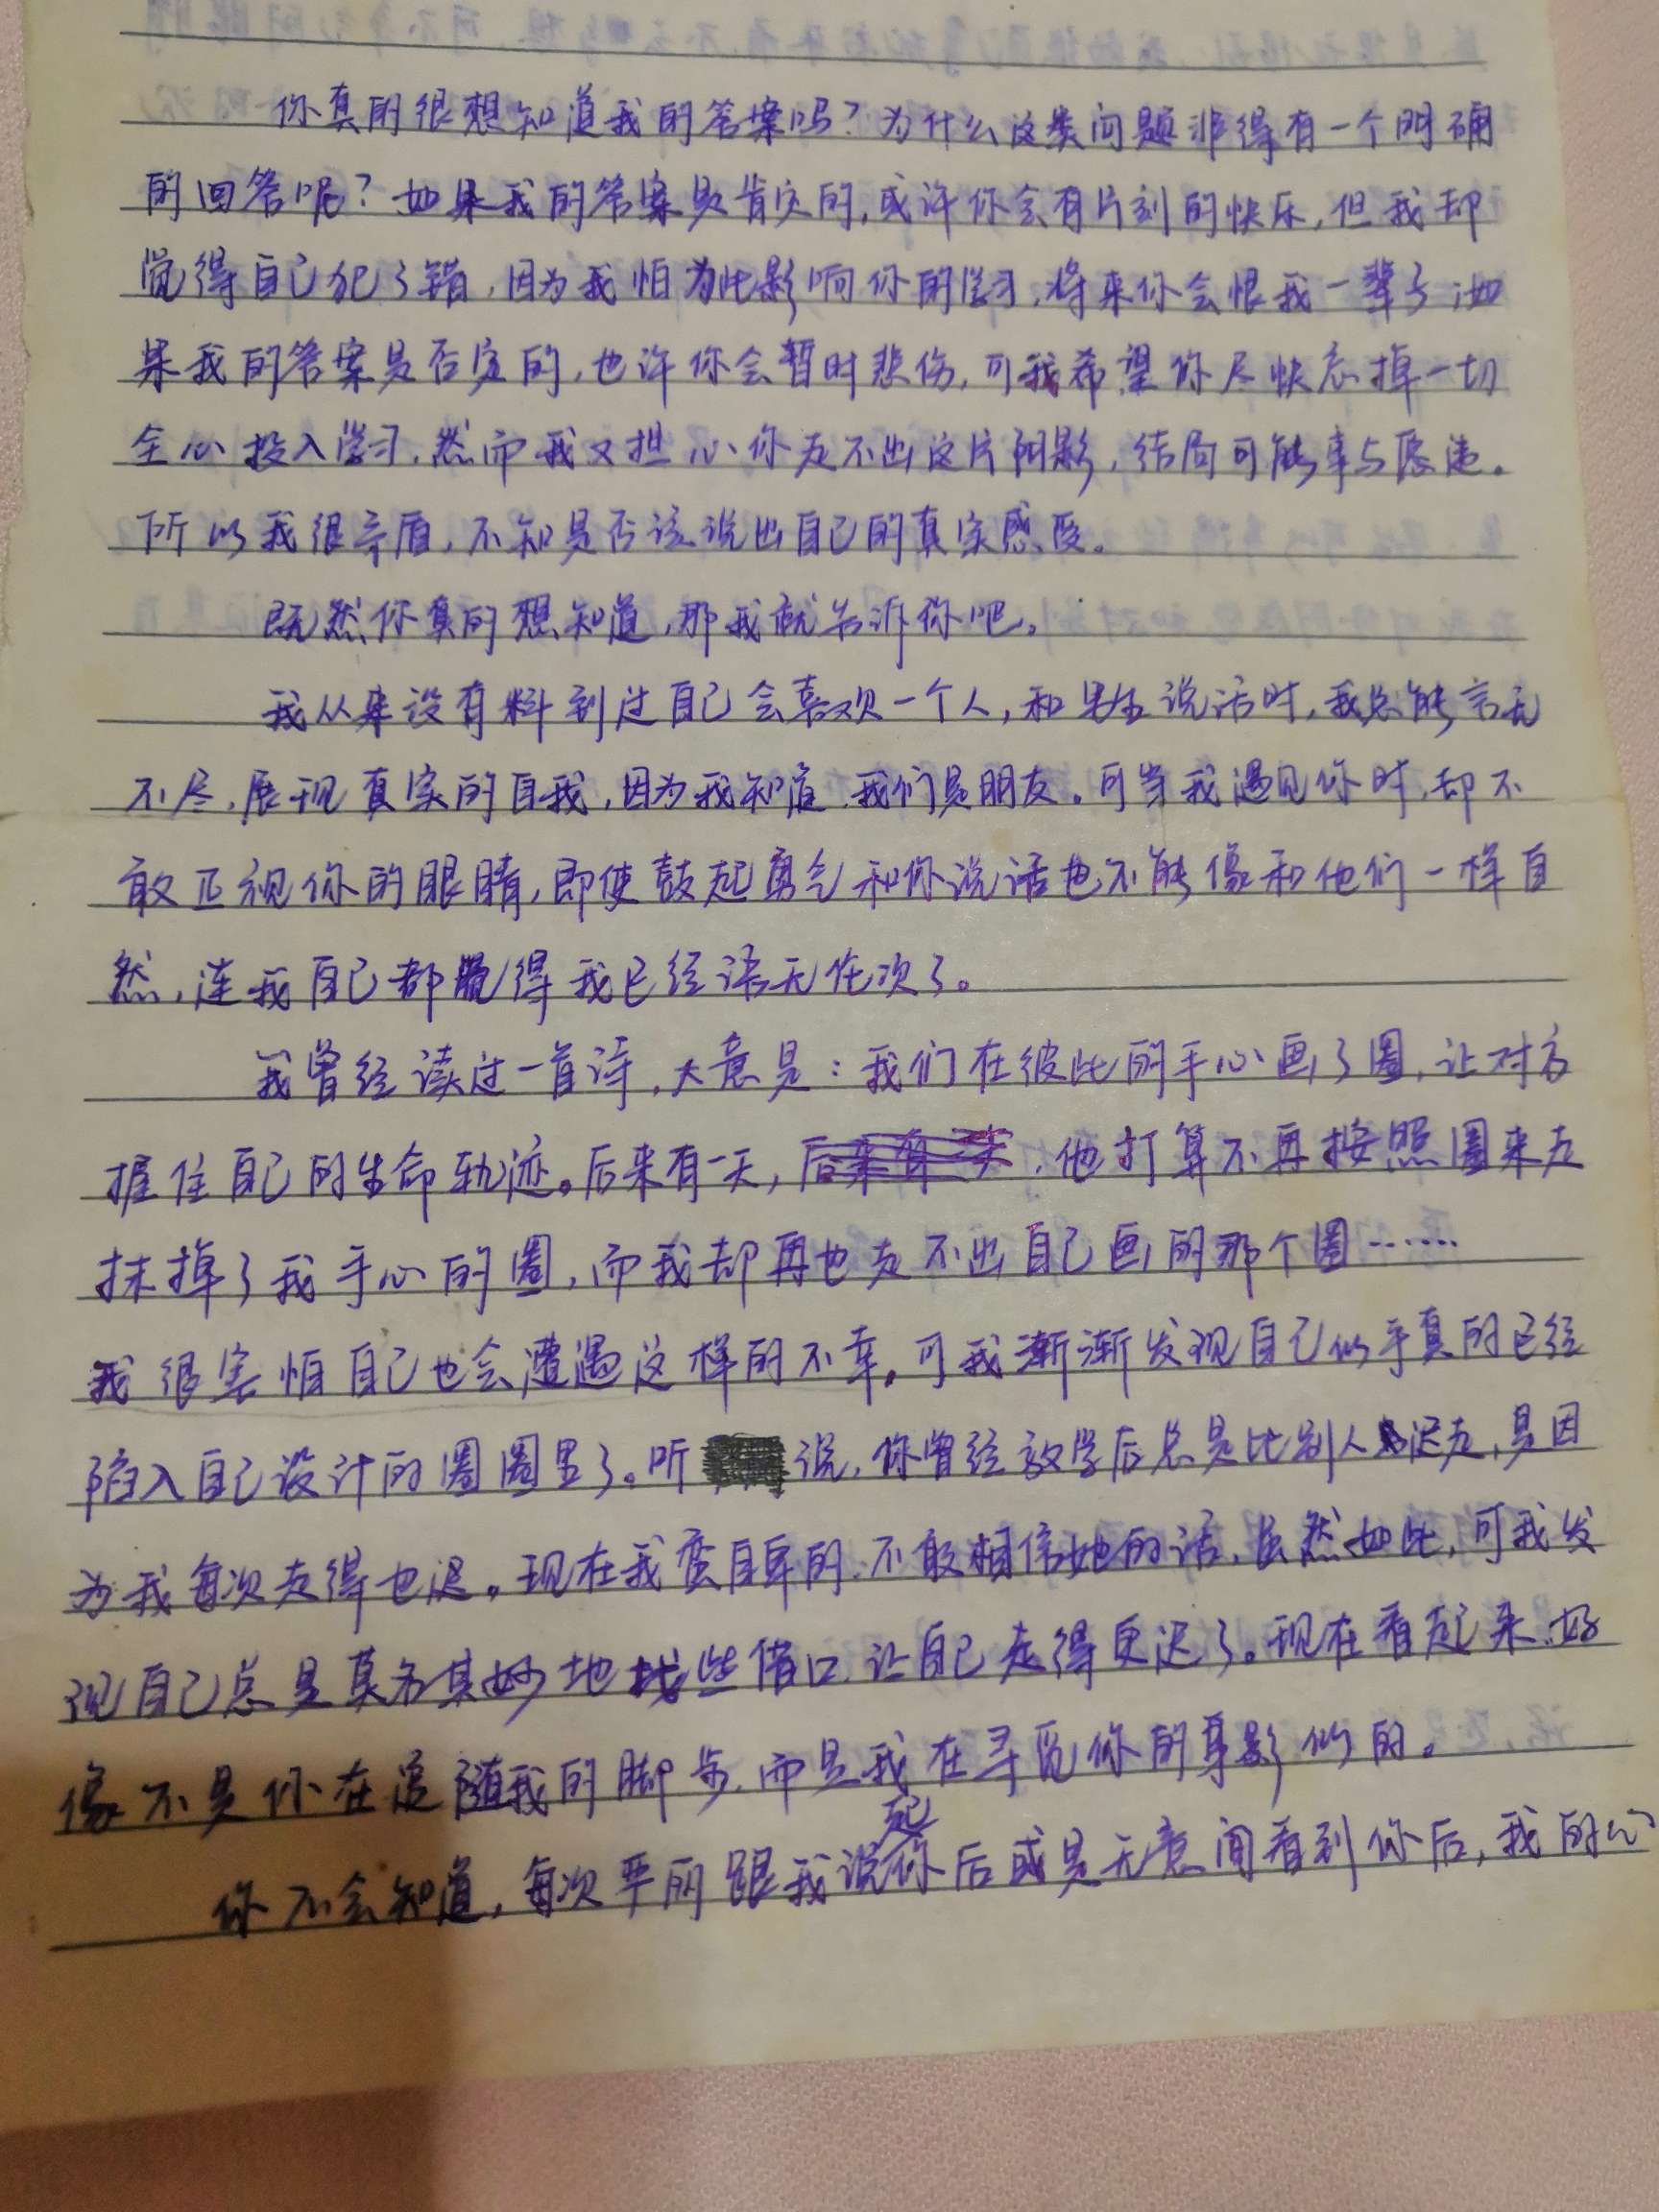 你真的很想知道我的答案吗？为什么这类问题非得有一个明确
的回答呢？如果我的答案是肯定的，或许你会有片刻的快乐，但我却
觉得自己犯了错，因为我怕为此影响你的学习，将来你会恨我一辈子；如
果我的答案是否定的，也许你会暂时悲伤，可我希望你尽快忘掉一切
全心投入学习，然而我又担心你走不出这片阴影，结局可能事与愿违。
所以我很矛盾，不知是否该说出自己的真实感受。
既然你真的想知道，那我就告诉你吧。
我从来没有料到过自己会喜欢一个人，和男生说话时，我总能言无
不尽，展现真实的自我，因为我知道，我们是朋友。可当我遇见你时，却不
敢正视你的眼睛，即使鼓起勇气和你说话也不能像和他们一样自
然，连我自己都觉得我已经语无伦次了。
我曾经读过一首诗，大意是：我们在彼此的手心画了圈，让对方
握住自己的生命轨迹。后来有一天，后来有一天，他打算不再按照圈来走
抹掉了我手心的圈，而我却再也走不出自己画的那个圈……
我很害怕自己也会遭遇这样的不幸。可我渐渐发现自己似乎真的已经
陷入自己设计的圈圈里了。听说，你曾经放学后总是比别人迟走，是因
为我每次走得也迟。现在我蛮自卑的，不敢相信她的话，虽然如此，可我发
现自己总是莫名其妙地找些借口，让自己走得更迟了。现在看起来，好
像不是你在追随我的脚步，而是我在寻觅你的身影似的。
你不会知道，每次严丽跟我说起你后或是无意间看到你后，我的心